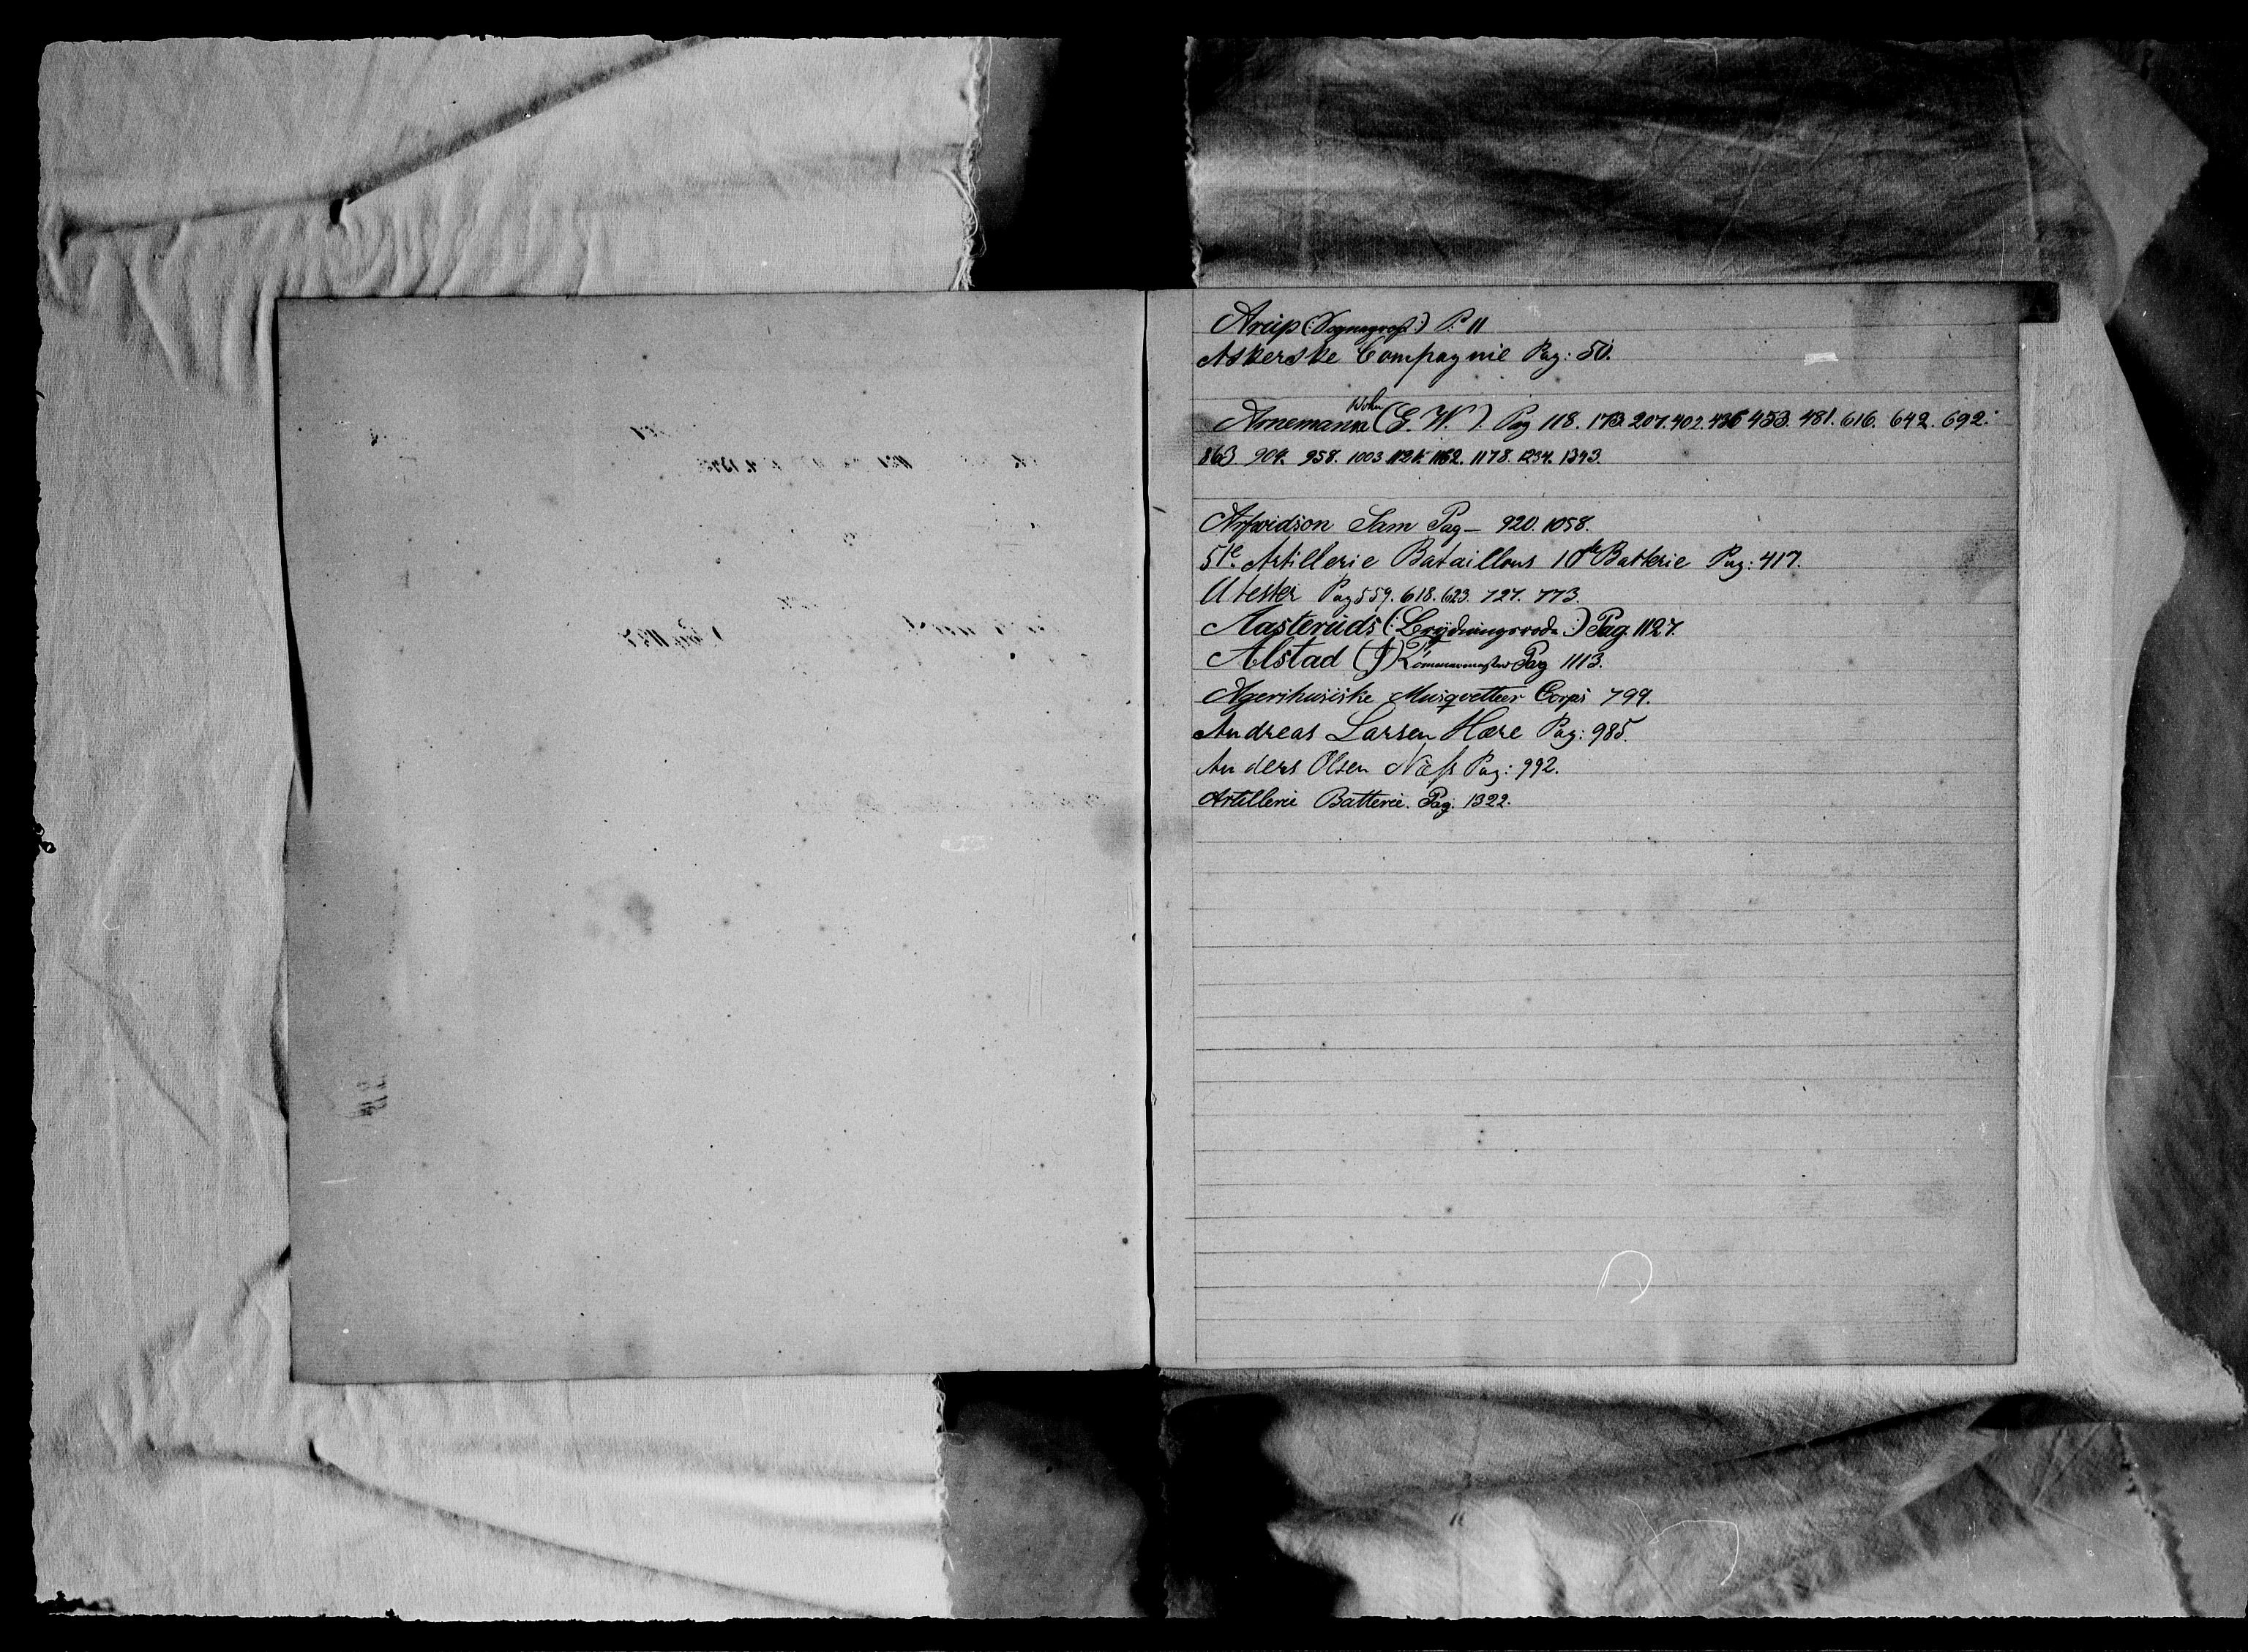 Arup (: Sogneprest :) P. 11
Askerske Compagnie Pag: 50.
Wolm
Arnemann (E. W.) Pag 118. 173. 207. 402. 436 453. 481. 616. 642. 692.
863 904. 958. 1003 1121. 1162. 1178. 1234. 1343.
Arfvidson Sam Pag – 920. 1058.
5te Artillerie Bataillons 10de Batterie Pag: 417.
Atester Pag 559. 618. 623. 727. 773.
Aasteruds (: Brydningsrode :) Pag. 1127.
Alstad (J) Tömmermester Pag 1113.
Agershusiske Musqvetteer Corps 799.
Andreas Larsen Hære Pag: 985.
Anders Olsen Næss Pag: 992.
Artillerie Batterie. Pag. 1322.